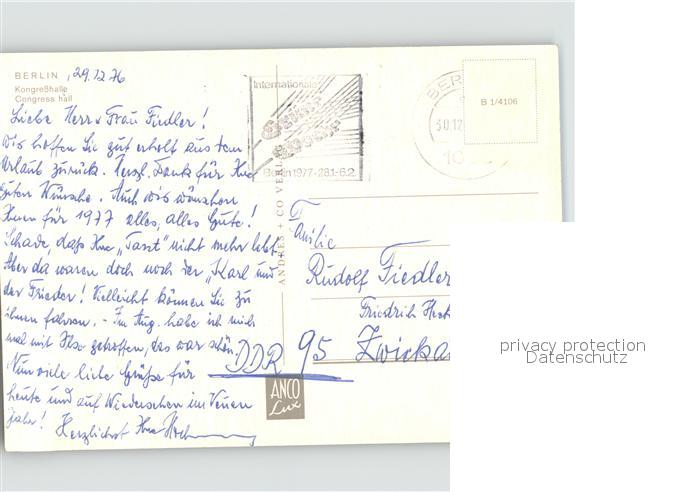 BERLIN, 29.12.76
Kongreßhalle
Congress hall
Liebe Herr u Frau Fiedler!
Wir hoffen Sie gut erholt aus dem
Urlaub zurück. Herzl. Dank für Ihre
guten Wünsche. Auch wir wünschen
Ihnen für 1977 alles, alles Gute!
Schade, daß Ihre nicht mehr lebt.
Aber da waren doch noch der "Karl und
der Frieder! Vielleicht können Sie zu
ihnen fahren. - Im Aug. habe ich mich
mal mit Ilse getroffen, das war schön.
Nun viele liebe Grüße für
heute und auf Wiedersehen im Neuen
Jahr! Herzlichst Ihre
Internationale
Grüne
Woche
Berlin 1977-28.1.-6.2.
BER
30.12
B 1/4106
ANDRES + CO VERL
Familie
Rudolf Fiedler
Friedrich
DDR 95 Zwicka
ANCO
Lux
privacy protection
Datenschutz